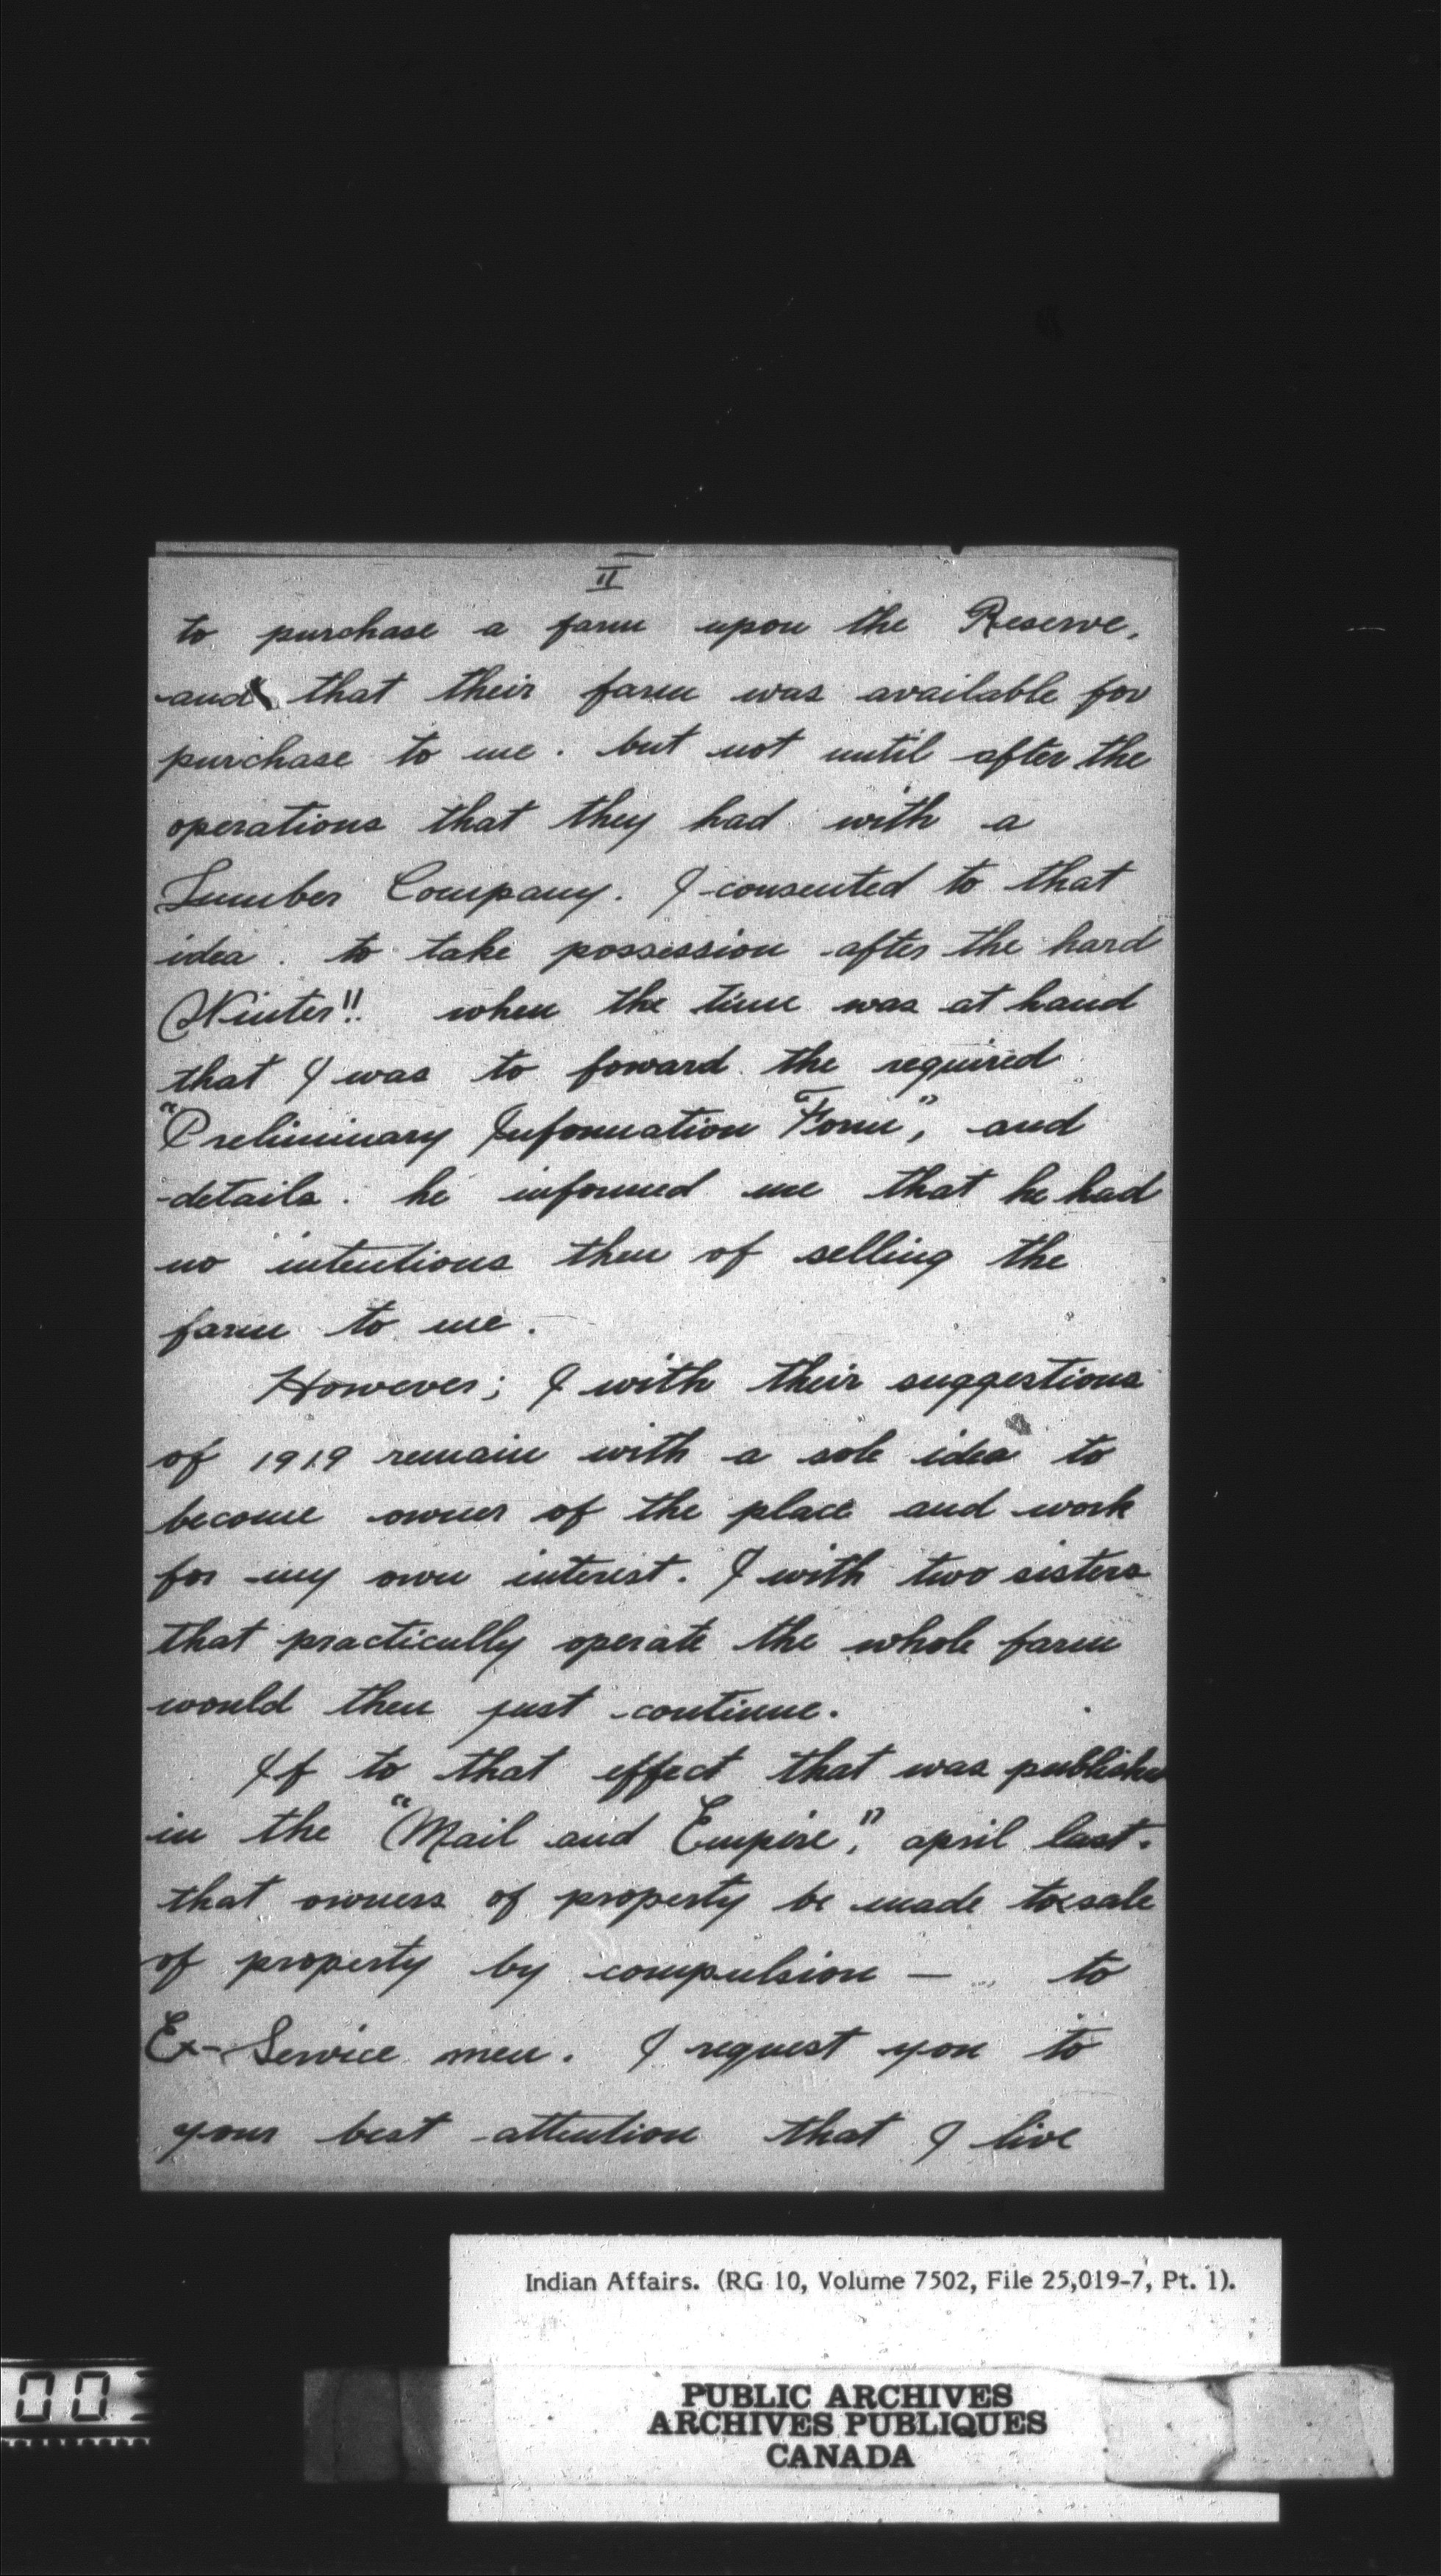 II
to purchase a farm upon the Reserve,
and that their farm was available for
purchase to me. but not until after the
operations that they had with a
Lumber Company. I consented to that
idea. to take possession after the hard
Winter!! when the time was at hand
that I was to foward the required
"Preliminary Information Form", and
details. he informed me that he had
no intentions then of selling the
farm to me.
However; I with their suggestions
of 1919 remain with a sole idea to
become owner of the place and work
for my own interest. I with two sisters
that practically operate the whole farm
would then just continue.
If to that effect that was publishe
in the "Mail and Empire", april last.
that owners of property be made to sale
of property by compulsion — to
Ex-Service men. I request you to
your best attention that I live
Indian Affairs. (RG 10, Volume 7502, File 25,019-7, Pt. 1).
PUBLIC ARCHIVES
ARCHIVES PUBLIQUES
CANADA
00